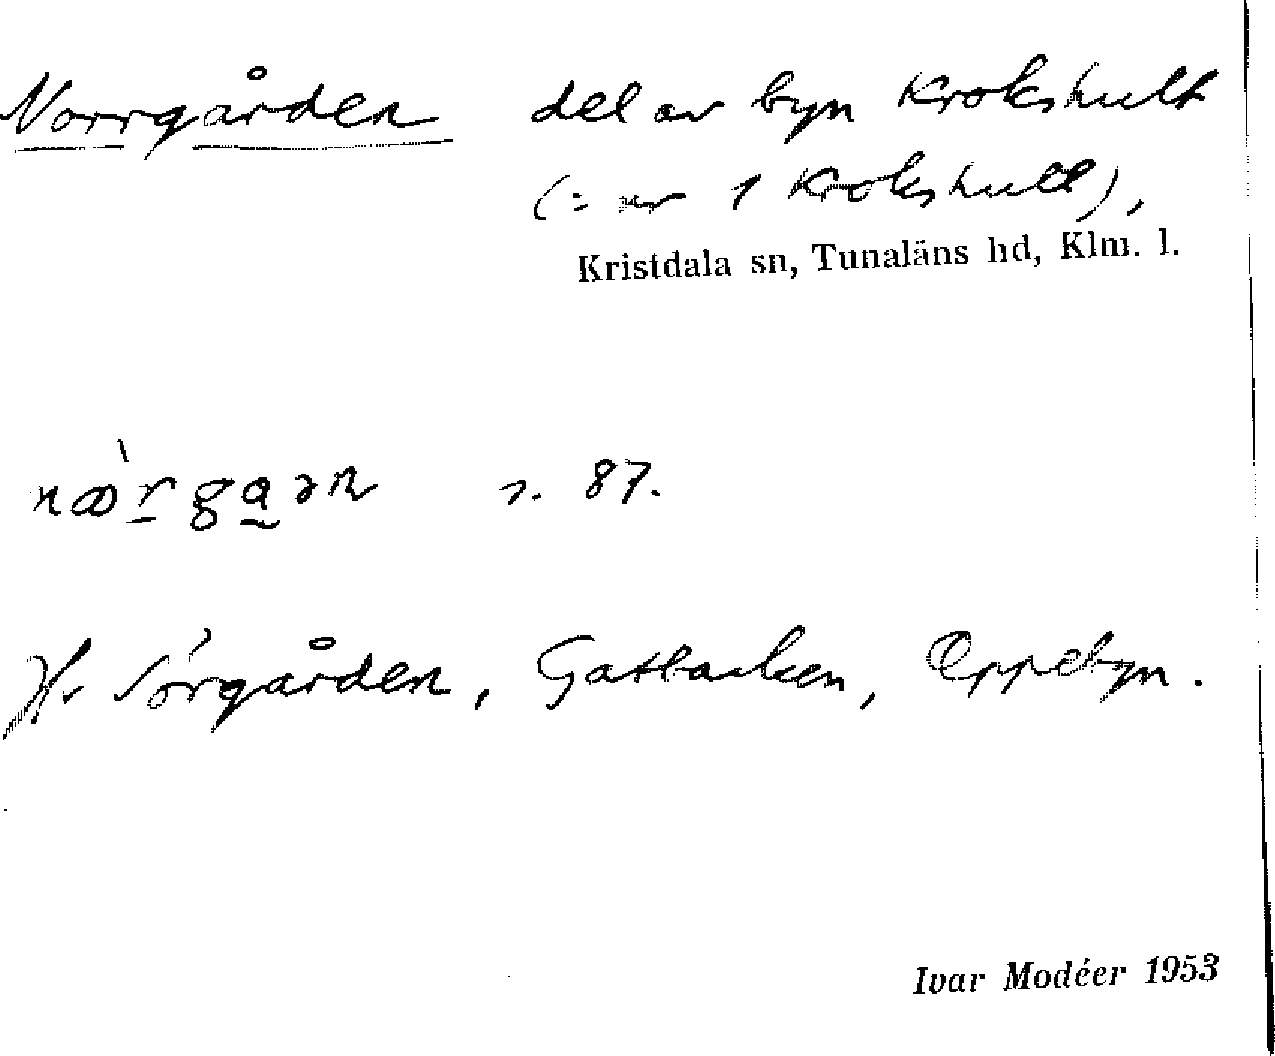 Norrgården del av byn Krokshult
(= nr 1 Krokshult),
Kristdala sn, Tunaläns hd, Klm. l.
s. 87.
Jfr Sörgården, Gatbacken, Öppebyn.
Ivar Modéer 1953